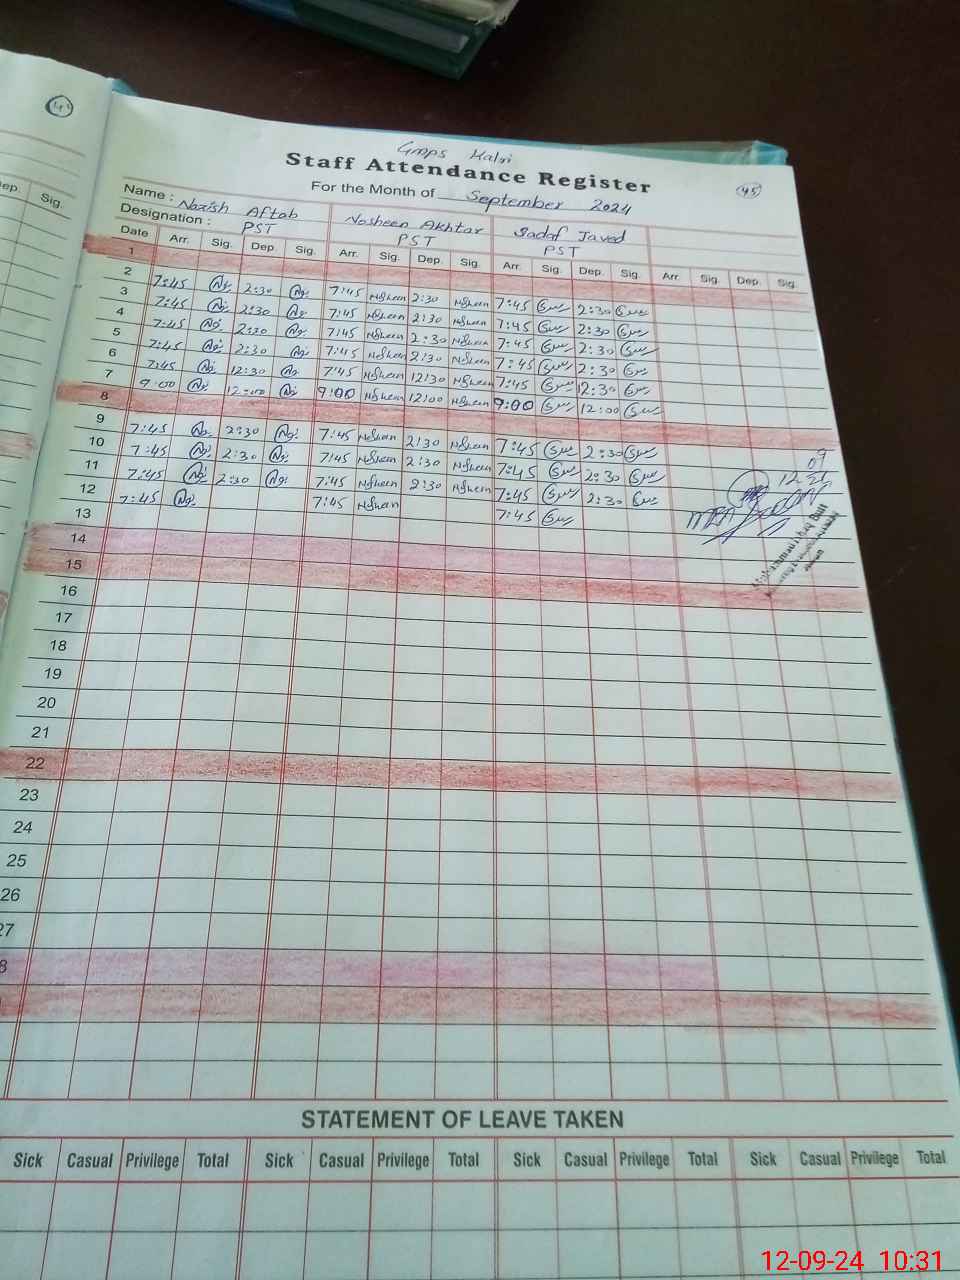 44
ep. Sig.
GMPS Kalri
Staff Attendance Register
45
For the Month of September 2024
Name : Nazish Aftab Nosheen Akhtar Sadaf Javed
Designation : PST PST PST
Date Arr. Sig. Dep. Sig. Arr. Sig. Dep. Sig. Arr. Sig. Dep. Sig. Arr. Sig. Dep. Sig.
1
2 7:45 2:30 7:45 Nosheen 2:30 Nosheen 7:45 2:30
3 7:45 2:30 7:45 Nosheen 2:30 Nosheen 7:45 2:30
4 7:45 2:30 7:45 Nosheen 2:30 Nosheen 7:45 2:30
5 7:45 2:30 7:45 Nosheen 2:30 Nosheen 7:45 2:30
6 7:45 12:30 7:45 Nosheen 12:30 Nosheen 7:45 12:30
7 9:00 12:00 9:00 Nosheen 12:00 Nosheen 9:00 12:00
8
9 7:45 2:30 7:45 Nosheen 2:30 Nosheen 7:45 2:30
10 7:45 2:30 7:45 Nosheen 2:30 Nosheen 7:45 2:30
11 7:45 2:30 7:45 Nosheen 2:30 Nosheen 7:45 2:30
12 7:45 7:45 Nosheen 7:45
13
14
15
16
17
18
19
20
21
22
23
24
25
26
27
8
STATEMENT OF LEAVE TAKEN
Sick Casual Privilege Total Sick Casual Privilege Total Sick Casual Privilege Total Sick Casual Privilege Total
12-09-24 10:31